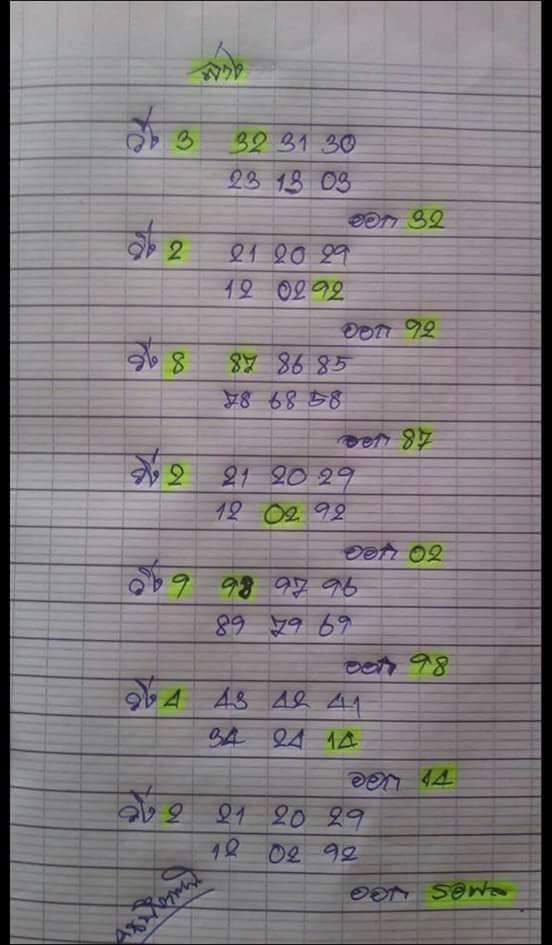 ล่าง
วิ่ง 3 32 31 30
23 13 03
ออก 32
วิ่ง 2 21 20 29
12 02 92
ออก 92
วิ่ง 8 87 86 85
78 68 58
ออก 87
วิ่ง 2 21 20 29
12 02 92
ออก 02
วิ่ง 9 98 97 96
89 79 69
ออก 98
วิ่ง 4 43 42 41
34 24 14
ออก 14
วิ่ง 2 21 20 29
12 02 92
ออก รอผล